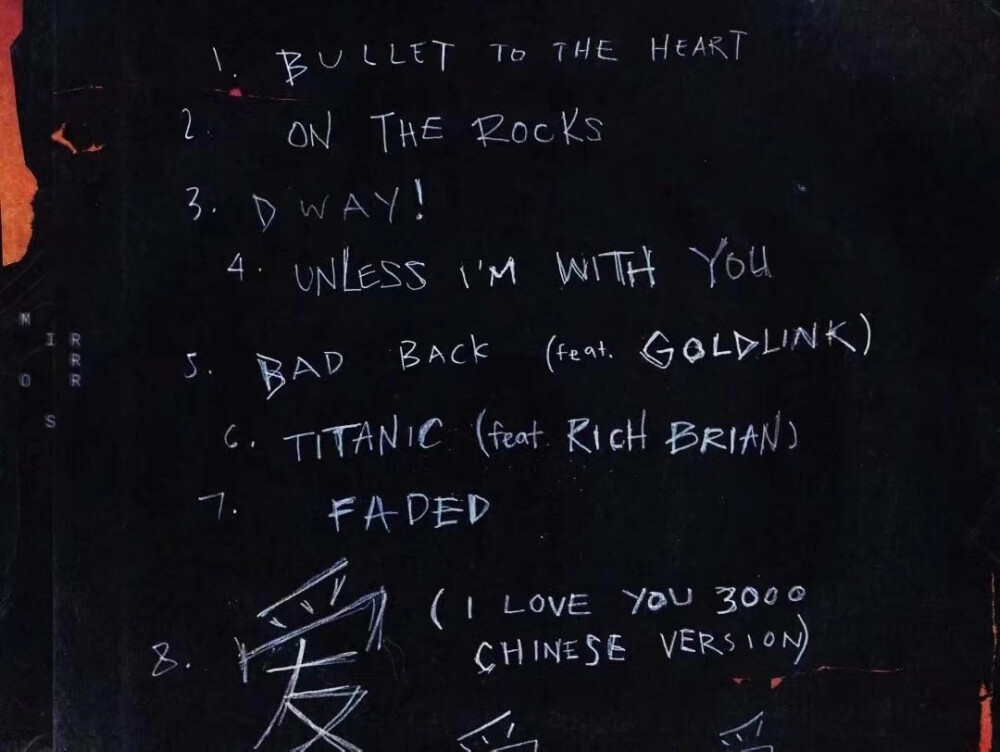 1. BULLET TO THE HEART
2. ON THE ROCKS
3. D WAY!
4. UNLESS I'M WITH YOU
5. BAD BACK (feat. GOLDLINK)
6. TITANIC (feat. RICH BRIAN)
7. FADED
8. 爱 (I LOVE YOU 3000
CHINESE VERSION)
MIRRORS